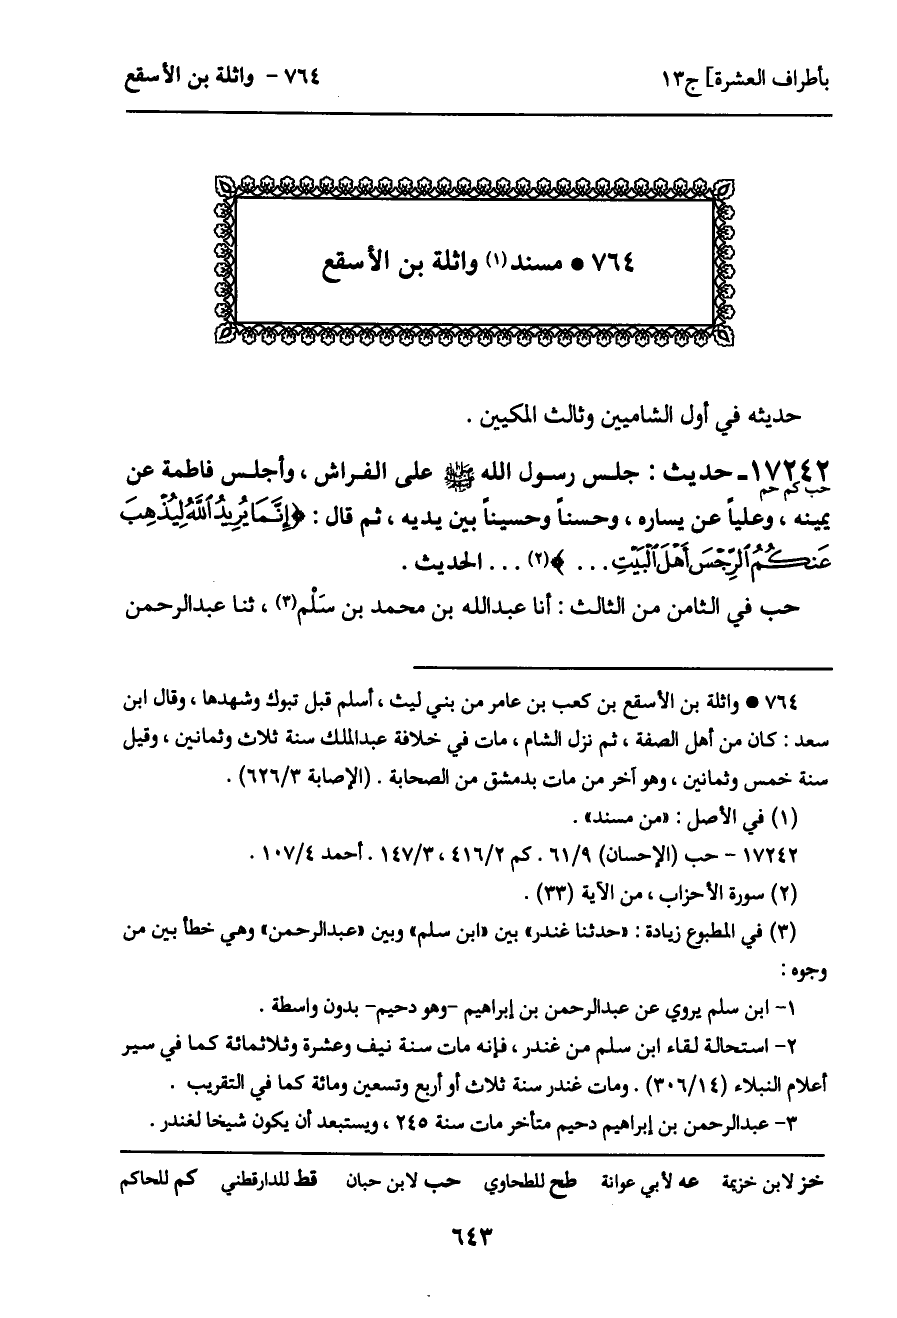 بأطراف العشرة] ج١٣
٧٦٤ - واثلة بن الأسقع
٧٦٤ ● مسند(١) واثلة بن الأسقع
حديثه في أول الشاميين وثالث المكيين .
١٧٢٤٢ـ حديث : جلس رسول الله ﷺ على الفراش ، وأجلس فاطمة عن
حب كم حم
يمينه ، وعلياً عن يساره ، وحسناً وحسيناً بين يديه ، ثم قال : ﴿إِنَّمَا يُرِيدُ ٱللَّهُ لِيُذْهِبَ
عَنكُمُ ٱلرِّجْسَ أَهْلَ ٱلْبَيْتِ ... ﴾(٢) ... الحديث .
حب في الثامن من الثالث : أنا عبدالله بن محمد بن سَلْم(٣) ، ثنا عبدالرحمن
٧٦٤ ● واثلة بن الأسقع بن كعب بن عامر من بني ليث ، أسلم قبل تبوك وشهدها ، وقال ابن
سعد : كان من أهل الصفة ، ثم نزل الشام ، مات في خلافة عبدالملك سنة ثلاث وثمانين ، وقيل
سنة خمس وثمانين ، وهو آخر من مات بدمشق من الصحابة . (الإصابة ٦٢٦/٣) .
(١) في الأصل : «من مسند» .
١٧٢٤٢ - حب (الإحسان) ٦١/٩ . كم ٤١٦/٢ ، ١٤٧/٣ . أحمد ١٠٧/٤ .
(٢) سورة الأحزاب ، من الآية (٣٣) .
(٣) في المطبوع زيادة : «حدثنا غندر» بين «ابن سلم» وبين «عبدالرحمن» وهي خطأ بين من
وجوه :
١- ابن سلم يروي عن عبدالرحمن بن إبراهيم -وهو دحيم- بدون واسطة .
٢- استحالة لقاء ابن سلم من غندر ، فإنه مات سنة نيف وعشرة وثلاثمائة كما في سير
أعلام النبلاء (٣٠٦/١٤) . ومات غندر سنة ثلاث أو أربع وتسعين ومائة كما في التقريب .
٣- عبدالرحمن بن إبراهيم دحيم متأخر مات سنة ٢٤٥ ، ويستبعد أن يكون شيخا لغندر .
خز لابن خزيمة عه لأبي عوانة طح للطحاوي حب لابن حبان قط للدارقطني كم للحاكم
٦٤٣